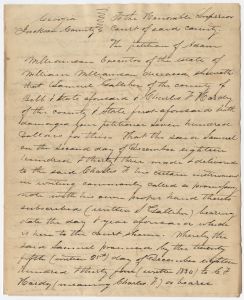 Georgia
To the Honorable Superior
Jackson County
Court of said county
The petition of Adam
Williamson Executor of the estate of
William Williamson deceased sheweth
that Samuel of the county of
Hall & State aforesaid & Charles F Hardy
of the county & State first aforesaid hath
damaged your petitioner four hundred
Dollars for this. That the said Samuel
on the second day of December eighteen
hundred & thirty three made & delivered
to the said Charles F his certain instrument
in writing commonly called a promissory
note with his own proper hand thereto
subscribed bearing
date the day & year aforesaid which
is here to the court shown. Whereby the
said Samuel promised by the twenty
fifth (written 25th) day of December eighteen
hundred & thirty four (written 1834) to C F
Hardy (meaning Charles F) or bearer